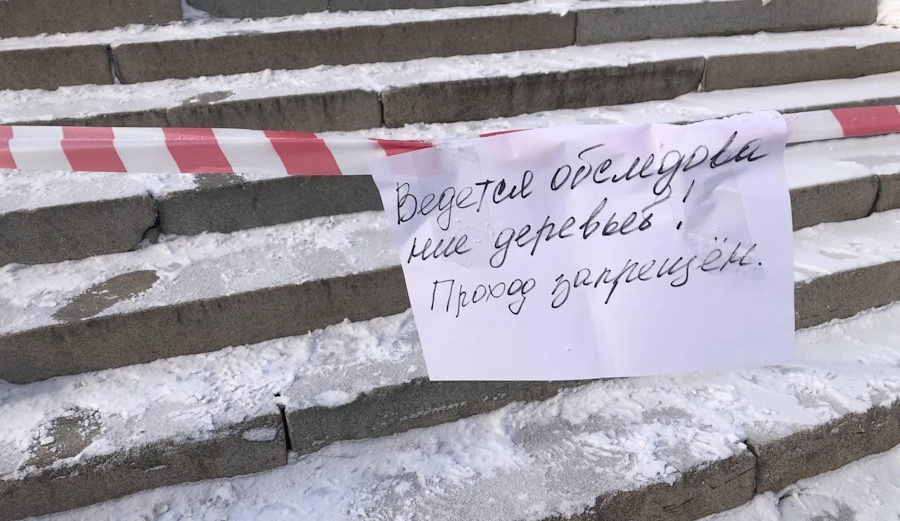 Ведется обследова
ние деревьев!
Проход запрещён.